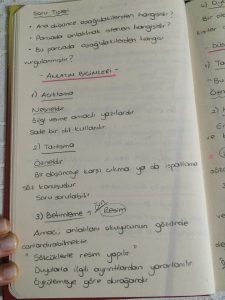 Soru Tipler
• Ana düşünce aşağıdakilerden hangisidir?
• Parçada anlatılmak istenen hangisidir?
• Bu parçada aşağıdakilerden hangisi
vurgulanmıştır?
- ANLATIM BİÇİMLERİ -
1) Açıklama
Nesneldir
Bilgi verme amaçlı yazılardır
Sade bir dil kullanılır
2) Tartışma
Özneldir
Bir düşünceye karşı çıkma ya da ispatlama
söz konusudur
Soru sorulabilir
3) Betimleme → Resim
Amaç; anlatılanı okuyucunun gözünde
canlandırabilmektir
"Sözcüklerle resim yapılır"
Duyularla ilgili ayrıntılardan yararlanılır
Öykülemeye göre durağandır